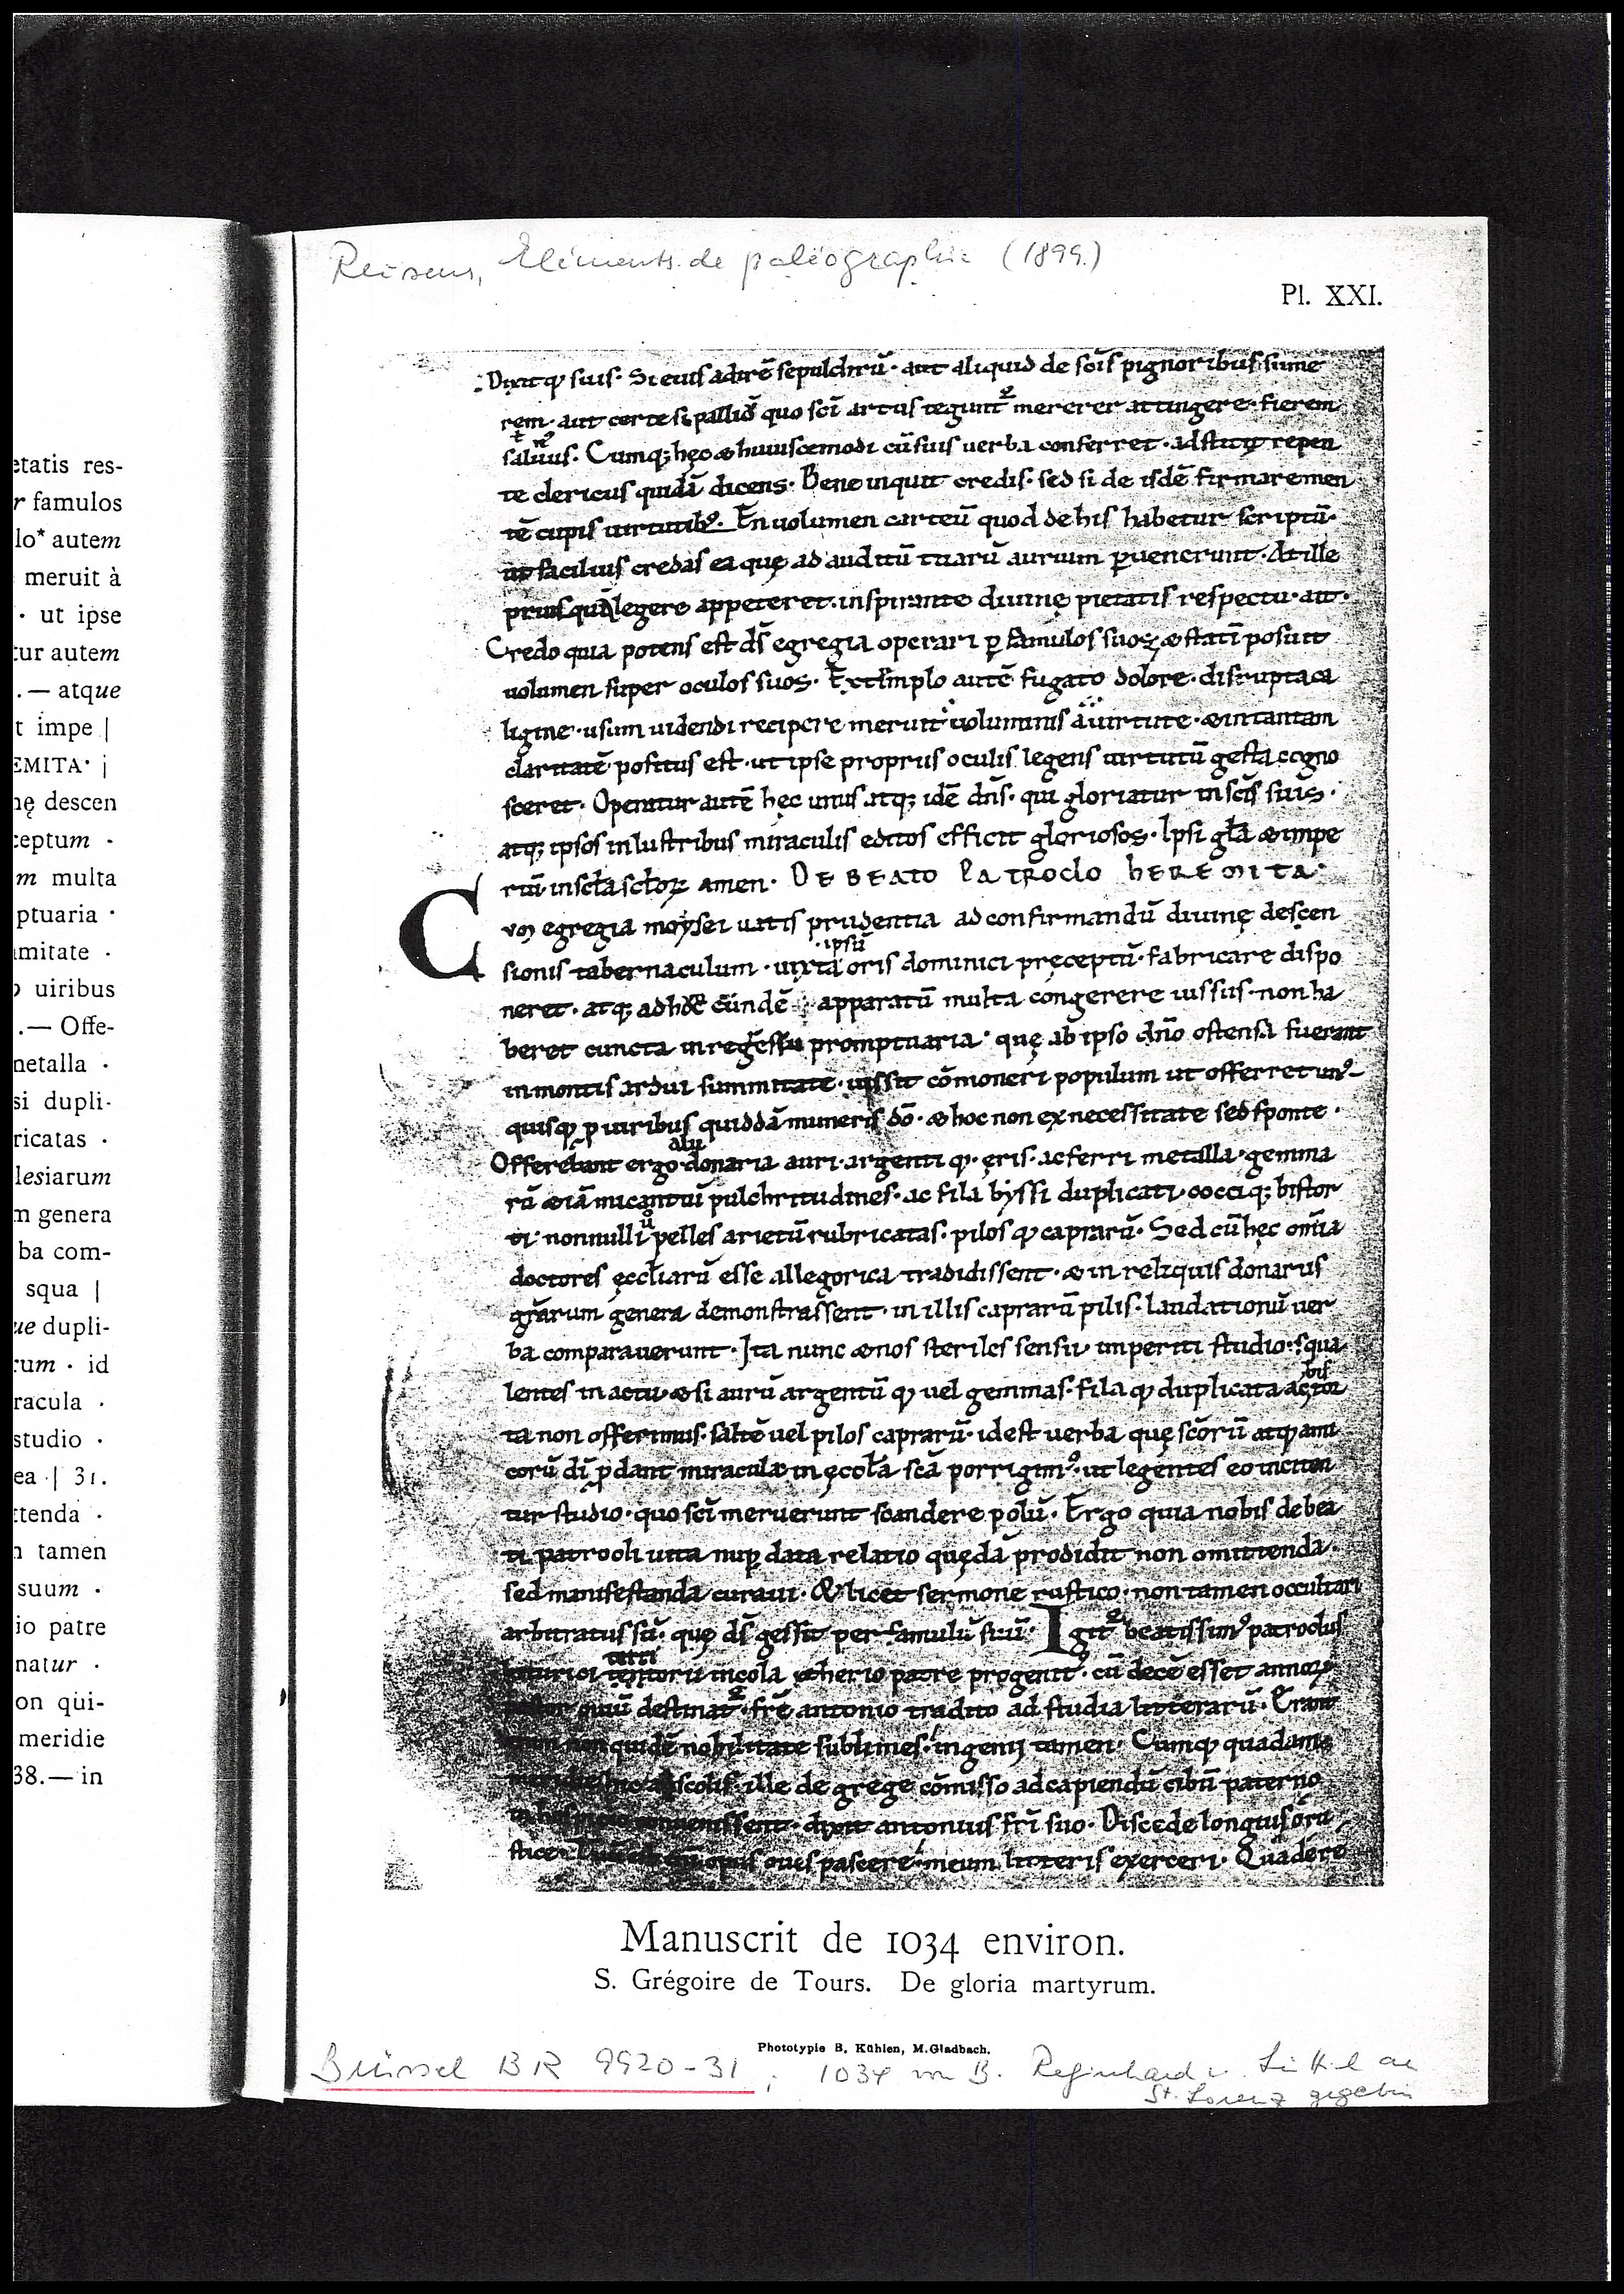 etatis res-
r famulos
lo* autem
meruit à
· ut ipse
tur autem
. — atque
t impe |
EMITA· |
nę descen
ceptum ·
m multa
ptuaria ·
mitate ·
o uiribus
.— Offe-
netalla ·
si dupli-
ricatas ·
lesiarum
n genera
ba com-
squa |
ue dupli-
rum · id
racula ·
studio ·
ea · | 31.
ttenda ·
n tamen
suum ·
io patre
natur ·
on qui-
meridie
38.— in
Reusens, Eléments de paléographie (1899.)
Pl. XXI.
Dixitq; suis· Si eius adirē sepulchrū· aut aliquid de scīs pignoribus sume
rem· aut certe si palliū quo scī artus tegunt᷒ mererer attingere· fierem
saluus· Cumq; hęc & huiuscemodi cū suis uerba conferret· adstitit repen
te clericus quidā dicens· Bene inquit credis· sed si de isdē firmare men
tē cupis uirtutib;· En uolumen carteū quod de his habetur scriptū·
ut facilius credas ea quę ad auditū tuarū aurium ꝑuenerunt· At ille
prius quā legere appeteret· inspirante diuinę pietatis respectu· ait·
Credo quia potens est dс̄ egregia operari ꝑ famulos suos, & statī posuit
uolumen super oculos suos· Extimplo autē fugato dolore· disruptaca
ligine· usum uidendi recipere meruit uoluminis a uirtute· & in tantam
claritatē positus est· ut ipse propriis oculis legens uirtutū gesta cogno
sceret· Operatur autē hęc unus atq; idē dn̄s· qui gloriatur in scīs suis·
atq; ipsos inlustribus miraculis editos efficit gloriosos· Ipsi gl̄a & impe
riū in scl̄a scl̄oꝝ amen· DE BEATO PATROCLO HEREMITA·
Cum egregia moysei uatis prudentia ad confirmandū diuinę descen
ipsū
sionis tabernaculum· iuxta oris dominici pręceptū· fabricare dispo
neret· atq; ad hoc eundē apparatū multa congerere iussus· non ha
beret cuncta in regestu promptuaria· quę ab ipso dn̄o ostensa fuerant
in montis ardui summitate· iussit cōmoneri populum ut offerret un᷒
quisq; p uiribus quiddā muneris dō· & hoc non ex necessitate sed sponte·
alii
Offerebant ergo donaria auri· argenti q;· ęris· ac ferri metalla· gemma
rū &iā micantiū pulchritudines· ac fila byssi duplicati, cocciq; bistor
ti· nonnulli pelles arietū rubricatas· pilos q; caprarū· Sed cū hęc om̄ia
doctores ęccl̄iarū esse allegorica tradidissent· & in reliquis donariis
gr̄arum genera demonstrassent· in illis caprarū pilis· laudationū uer
ba comparauerunt· Ita nunc & nos steriles sensu· imperiti studio· squa
bis
lentes in actu & si aurū argentū q; uel gemmas· fila q; duplicata ac tor
ta non offerimus· saltē uel pilos caprarū· id est uerba quę scōrū atq; ami
corū dī ꝓdant miracula in ęccl̄a scā porrigim᷒· ut legentes eo inciten
tur studio· quo scī meruerunt scandere polū· Ergo quia nobis de bea
ti patrocli uita nuꝑ data relatio quędā prodidit non omittenda·
sed manifestanda curaui· & licet sermone rustico· non tamen occultari
arbitratus sū· quę dс̄ gessit per famulū suū· Igit᷒ beatissim᷒ patroclus
terri
tentorii incola &herio patre progenit᷒· cū decē esset annoꝝ
ouiū destinat᷒· fr̄e antonio tradito ad studia litterarū· Erant
non quidē nobilitate sublimes· ingenij tamen· Cumq; quadam
scolis· ille de grege cōmisso ad capiendū cibū paterno
conuenissent· dixit antonius fr̄i suo· Discede longius ō ru
stice· opus oues pascere· meum litteris exerceri· Quā de re
Manuscrit de 1034 environ.
S. Grégoire de Tours. De gloria martyrum.
Phototypie B. Kühlen, M.Gladbach.
Brüssel BR 9920-31; 1034 von B. Reginhard v. Lüttich an
St. Lorenz gegeben